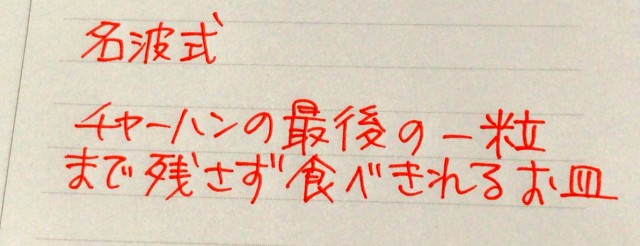 名波式
チャーハンの最後の一粒
まで残さず食べきれるお皿